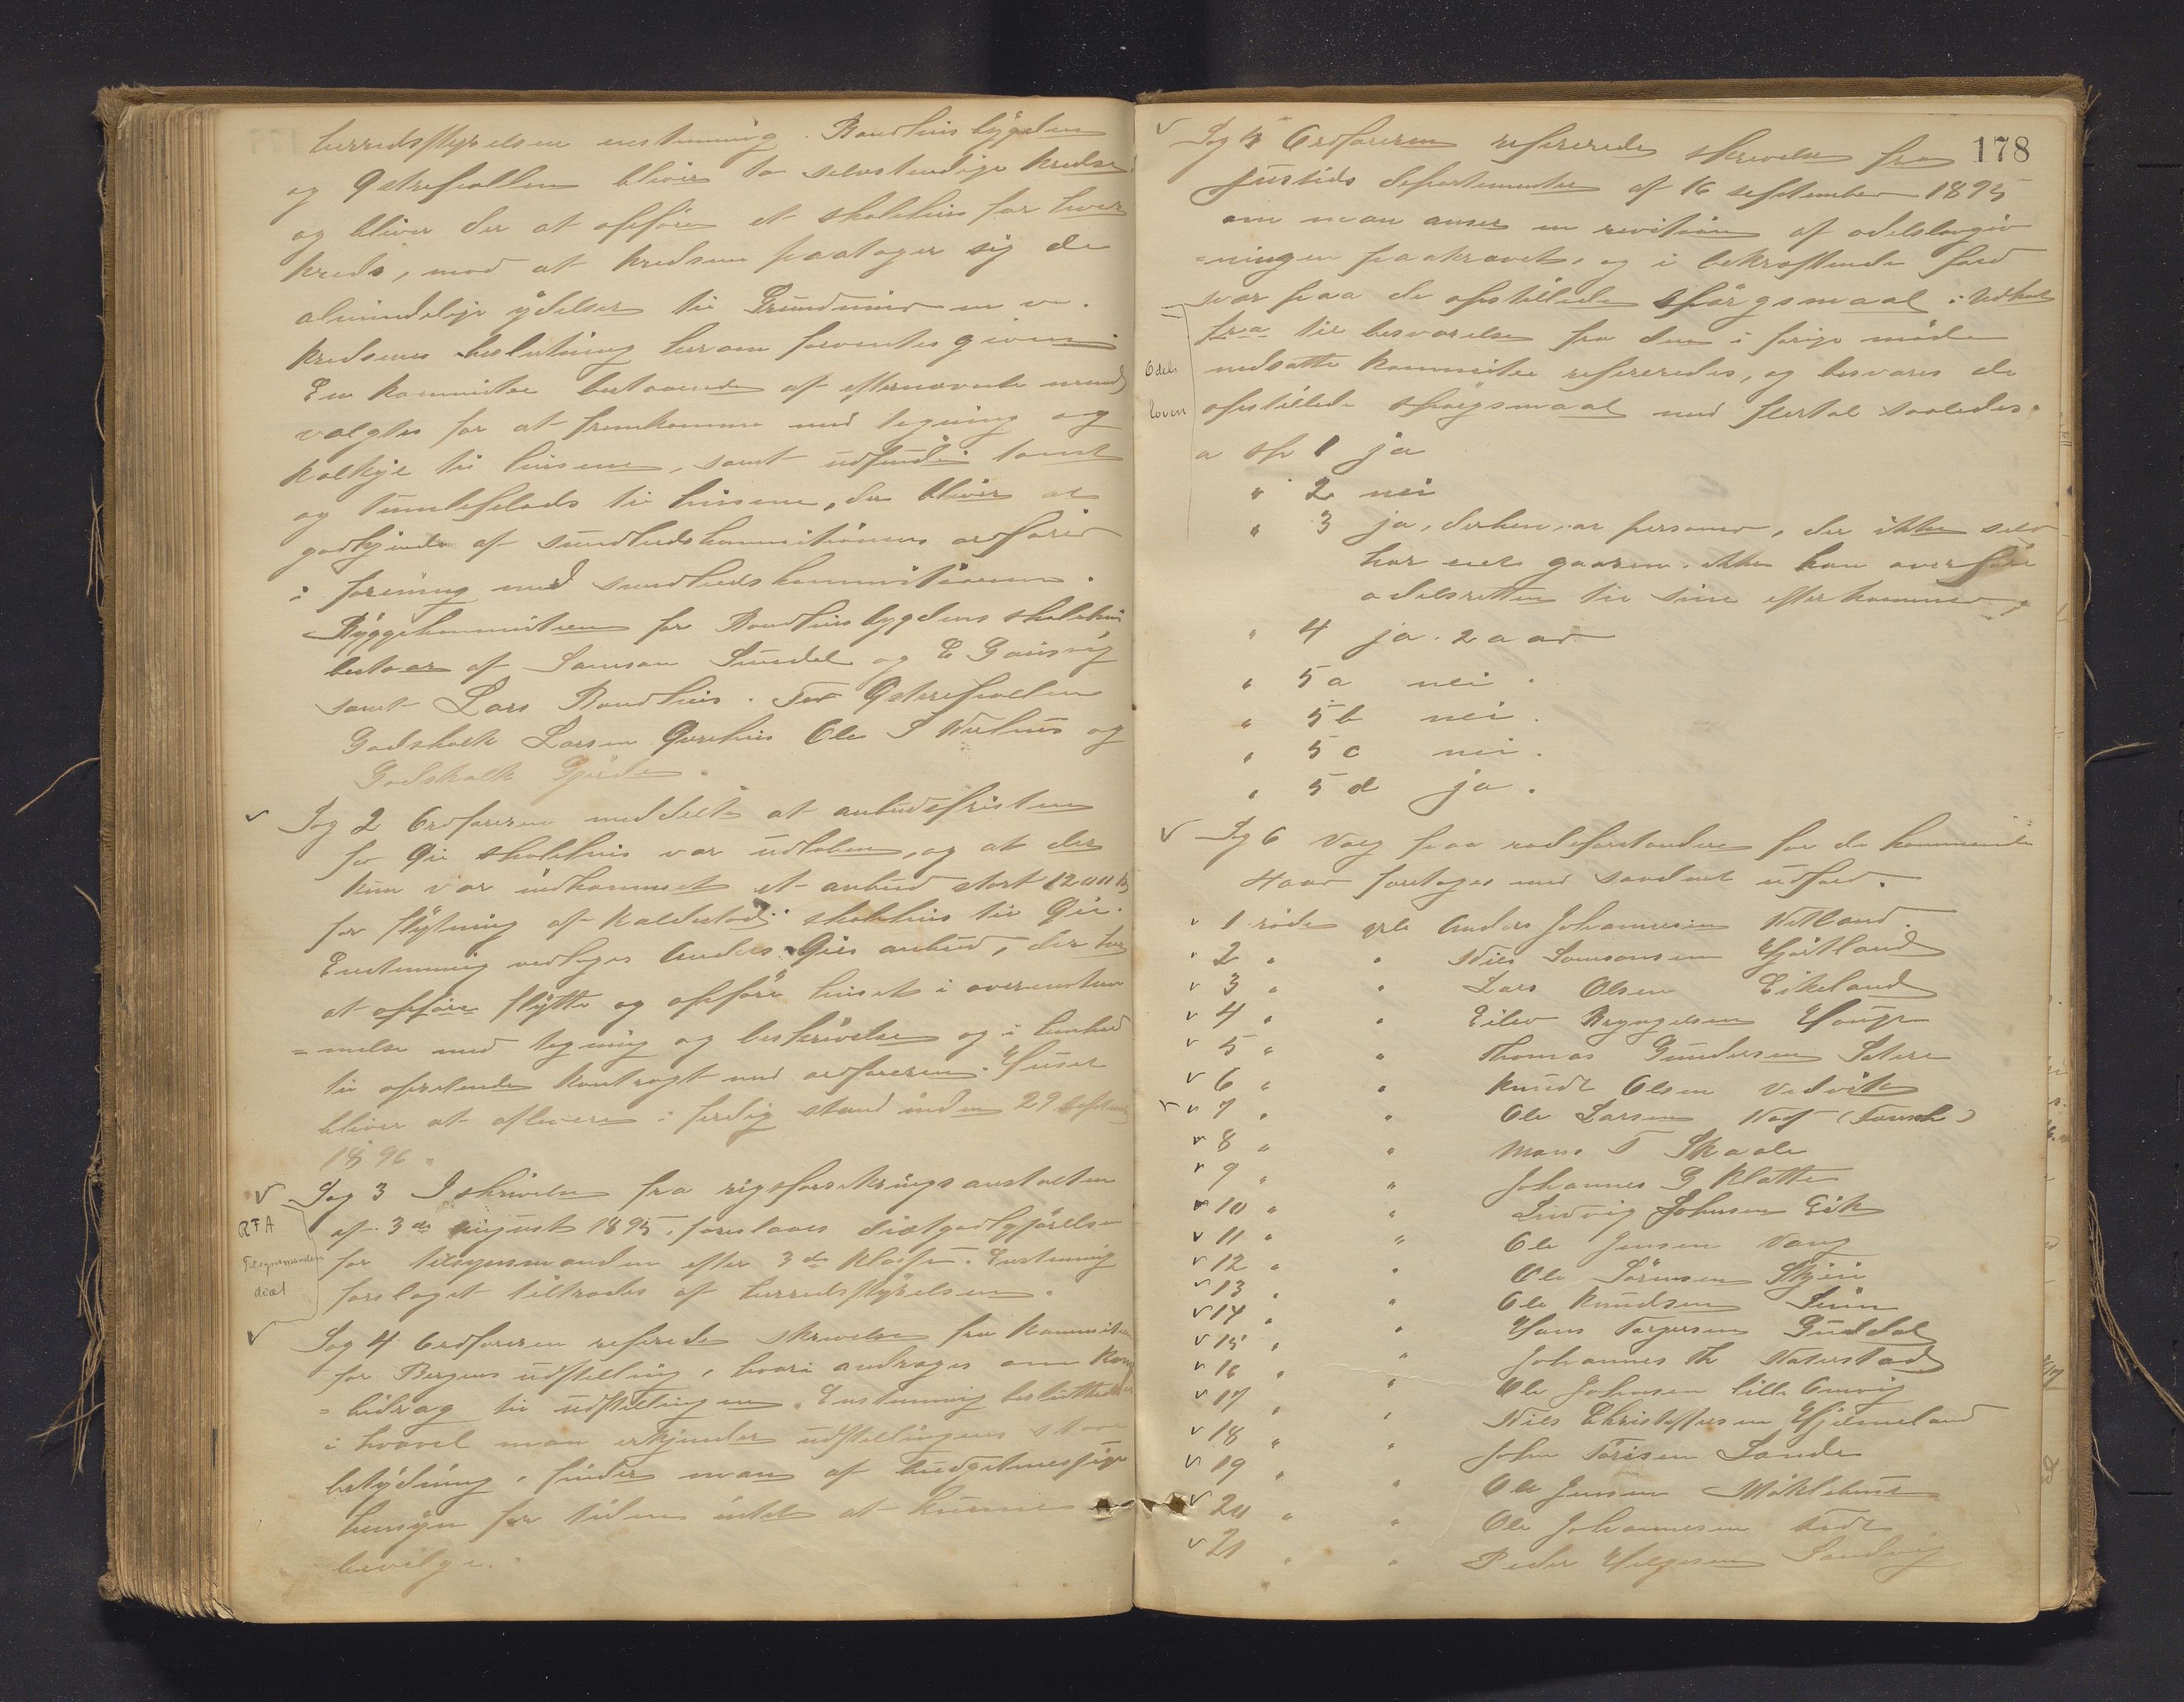 herredsstyrelsen enstemmig. Baudhusbygden
og Østrepollen bliver to selvstendige kredse
og bliver der at opføre et skolehus for hver
kreds, mod at kredsene paatager sig de
almindelige ydelser til Grundmur m v.
kredsenes beslutning herom forventes given
En kommitee bestaaende af efternævnte mend
valgtes for at fremkomme med tegning og
kalkyle til husene, samt udfinde tomt
og tumleplads til husene, der bliver at
godkjende af sundhedskommissionens ordfører
i forening med sundhedskommissionen.
Byggekommiteen for Baudhusbygdens skolehus
bestaar af Samson Sundal og E Gausvig
samt Lars Baudhus. For Østrepollen
Godskalk Larsen Øvrehus Ole S Nuhus og
Godskalk Gjerde.
Sag 2 Ordføreren meddelte at anbudsfristen
for Øie skolehus var udløben, og at der
kun var indkommet et anbud stort 1200 kr
for flytning af Kaldestad skolehus til Øie.
Enstemmig vedtages Anders Øies anbud, der har
at opføre flytte og opføre huset i overenstem
=melse med tegning og beskrivelse og i henhold
til oprettende kontragt med ordføreren. Huset
bliver at aflevere i ferdig stand inden 29 septemb
1896.
Sag 3 I skrivelse fra rigsforsekringsanstalten
RFA
af 3de august 1895, foreslaaes diætgodtgjørelsen
Tilsynsmanden
for tilsynsmanden efter 3de klasse. Enstemmig
diæt
forslaget tiltrædes af herredsstyrelsen.
Sag 4 Ordføreren refererede skrivelse fra kommiteen
for Bergens udstilling, hvori andrages om
=bidrag til udstillingen. Enstemmig besluttedes
i hvorvel man erkjender udstillingens store
betydning, finder man af budgetmessige
hensyn for tiden intet at kunne
bevilge.
178
Sag 5 Ordføreren refererede skrivelse fra
justids departementet af 16 september 1895
om man anser en revision af odelslovgiv
=ningen paakrævet, og i bekræftende fald
svar paa de opstillede spørgsmaal. Udkast
til besvarelse fra den i forige møde
Odels
nedsatte kommitee refereredes, og besvares de
loven
opstillede spørgsmaal med flertal saaledes:
a sp 1 ja
" 2 nei
" 3 ja, derhen, at personer, der ikke selv
har eiet gaarden, ikke kan overføre
odelsretten til sine efterkommere,
" 4 ja. 2 aar
" 5 a nei.
" 5 b nei.
" 5 c nei.
" 5 d ja.
Sag 6 Valg paa rodeforstandere for de kommende
4 aar foretoges med saadant udfald.
1 rode valgt Anders Johannesen Netland.
2 " " Nils Samsonsen Hjørtland
3 " " Lars Olsen Eikeland
4 " " Eilev Bryngelsen Hauge
5 " " Thomas Gundersen Sætere
6 " " Knudt Olsen Vedvik
7 " " Ole Larsen Næs
8 " " Mons T Skaale
9 " " Johannes G Kløtte
10 " " Ludvig Johnsen Eik
11 " " Ole Jensen Vang
12 " " Ole Sørensen Skjeie
13 " " Ole Knudsen Sunn
14 " " Hans Torgersen Guddal
15 " " Johannes Th Naterstad
16 " " Ole Johnsen lille Omvig
17 " " Nils Christoffersen Hjelmeland
18 " " John Torisen Sande
19 " " Ole Jensen Møklebust
20 " " Ole Johannesen
21 " " Peder Helgesen Sandvig